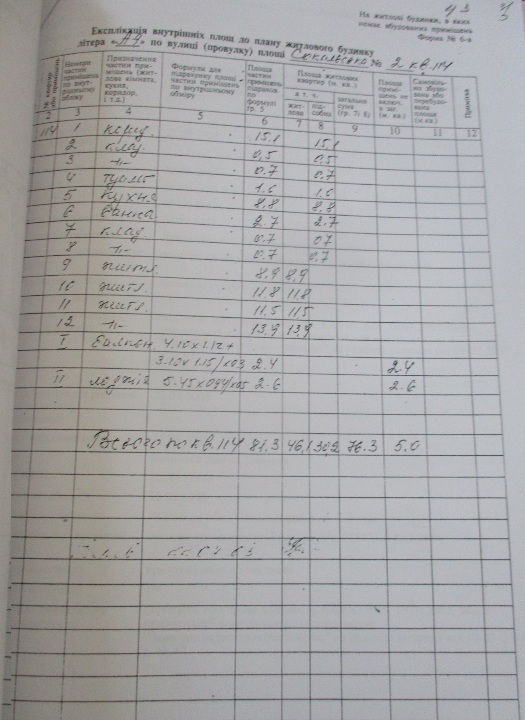 На житлові будинки, в яких
немає вбудованих приміщень
Форма № 6-а
Експлікація внутрішніх площ до плану житлового будинку
літера «А-9» по вулиці (провулку) площі № 2 кв. 114
Номери частин приміщень по внутрішньому обміру
Призначення частин приміщень (житлова кімната, кухня, коридор, і т.д.)
Формули для підрахунку площ частин приміщень по внутрішньому обміру
Площа частин приміщень підрахов. по формулі гр. 5
Площа житлових квартир (м. кв.)
в т. ч.
житлова
підсобна
загальна сума (гр. 7+8)
Примітка
2 3 4 5 6 7 8 9 10 11 12
114 1 корид. 15,1 15,1
2 клад. 0,5 0,5
3 -"- 0,7 0,7
4 туалет 1,6 1,6
5 кухня 8,8 8,8
6 Ванна 2,7 2,7
7 клад. 0,7 0,7
8 -"- 0,7 0,7
9 житл. 8,9 8,9
10 житл. 11,8 11,8
11 житл. 11,5 11,5
12 -"- 13,9 13,9
I Балкон 4.10x1.12+
3.10x1.15/x03 2.4 2.4
II лоджія 5.45x0.94/x05 2.6 2.6
Всього по кв. 114 81.3 46,1 30,2 76.3 5.0